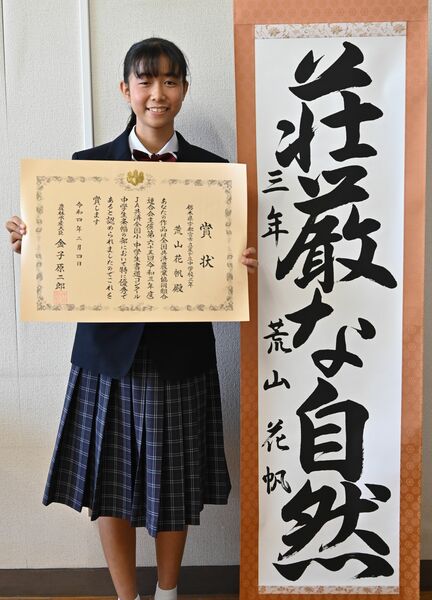 荘厳な自然
三年 荒山花帆
賞状
荒山花帆殿
あなたの作品は全国共済農業協同組合
連合会主催第六十五回令和三年度
JA共済全国小・中学生書道コンクール
中学生条幅の部において特に優秀で
あると認められましたのでこれを
賞します
令和四年二月四日
農林水産大臣 金子原二郎